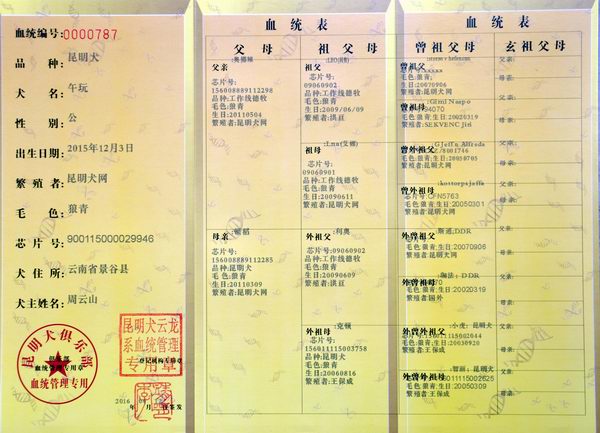 血统编号:0000787
品 种: 昆明犬
犬 名: 午玩
性 别: 公
出生日期: 2015年12月3日
繁 殖 者: 昆明犬网
毛 色: 狼青
芯 片 号: 900115000029946
犬 住 所: 云南省景谷县
犬主姓名: 周云山
昆明犬俱乐部
血统管理专用章
血统管理专用
昆明犬云龙
系血统管理
专用章
2016 年 月 日签发
血 统 表
父 母
父亲
芯片号:
156008889112298
品种:工作线德牧
毛色:狼青
生日:20110504
繁殖者:昆明犬网
母亲
芯片号:
156008889112285
品种:昆明犬
毛色:狼青
生日:20110309
繁殖者:昆明犬网
祖父母
祖父
芯片号:
09060902
品种:工作线德牧
毛色:狼青
生日:2009/06/09
繁殖者:洪亘
祖母
芯片号:
09060901
品种:工作线德牧
毛色:狼青
生日:20090611
繁殖者:昆明犬网
外祖父:利奥
芯片号:
09060902
品种:工作线德牧
毛色:狼青
生日:20090609
繁殖者:洪亘
外祖母:克顿
芯片号:
156011115003758
品种:昆明犬
毛色:狼青
生日:20060816
繁殖者:王保成
血 统 表
曾祖父母
曾祖父
毛色:狼青;
生日:20070906
繁殖者:昆明犬网
曾祖母
毛色:狼青 生日:20020319
繁殖者:SEKVENC Jiri
曾外祖父
毛色:狼青 生日:20050705
繁殖者:昆明犬网
曾外祖母
毛色:狼青 生日:20050301
繁殖者:昆明犬网
外曾祖父:斯通;DDR
毛色:狼青 生日:20070906
繁殖者:昆明犬网
外曾祖母:珈法; DDR
毛色:狼青 生日:20020319
繁殖者:国外
外曾外祖父:小虎; 昆明犬
毛色:狼青 生日:20030920
繁殖者:王保成
外曾外祖母:智丽; 昆明犬
毛色:狼青 生日:20050309
繁殖者:王保成
玄祖父母
父亲:
母亲:
父亲:
母亲:
父亲:
母亲:
父亲:
母亲:
父亲:
母亲:
父亲:
母亲:
父亲:
母亲:
父亲:
母亲: